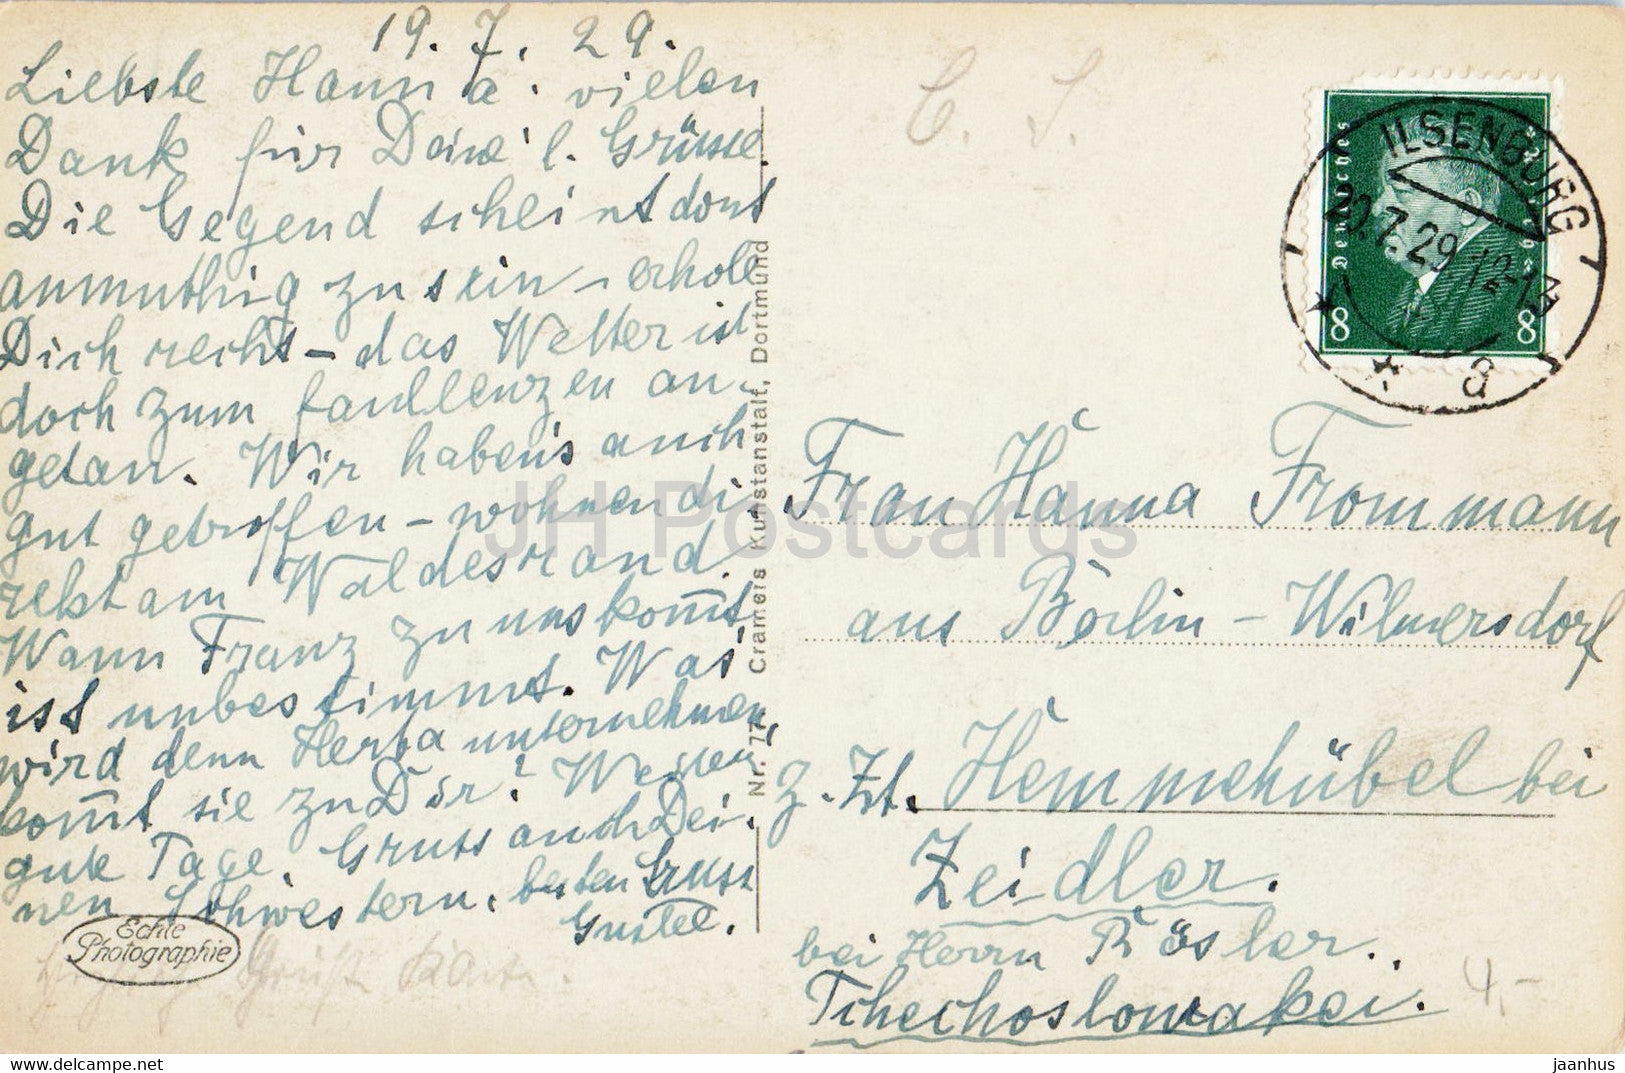 19. 7. 29.
Liebste Hanna! vielen
Dank für Deine l. Grüsse.
Die Gegend scheint dort
anmuthig zu sein – erhole
Dich recht – das Wetter ist
doch zum faullenzen an-
getan. Wir haben's auch
gut getroffen – wohnen di-
rekt am Waldesrand.
Wann Franz zu uns kom̄t
ist unbestimmt. Was
wird denn Herta unternehmen,
kom̄t sie zu Dir?
gute Tage. Gruss auch Dei-
nen Schwestern, besten Gruss
Gustel.
Echte
Photographie
Nr. 77 Cramers Kunstanstalt, Dortmund
C. S.
Deutsches Reich
8 8
ILSENBURG
20.7.29 12-13
a
Frau Hanna Frommann
aus Berlin – Wilmersdorf
z. Zt. Hemmehübel bei
Zeidler.
bei Herrn Rösler.
Tchechoslowakei.
4,-
JH Postcards
https://www.delcampe.net
jaanhus